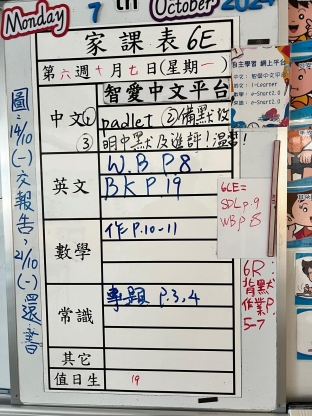 Monday
7
th
October
2024
家課表6E
第六週十月七日(星期一)
智愛中文平台
中文① padlet ②備默及
③ 明中默及進評1溫習!
英文
W.B P8.
BK P.19
數學
作 P.10-11
常識
專題 P.3,4
其它
值日生
19
圖:14/10(一)交報告,21/10(一)還書
自主學習 網上平台
中文:智愛中文平台
6CE=
SDLp.9
WBp8
6R:
背默
作業P
5-7